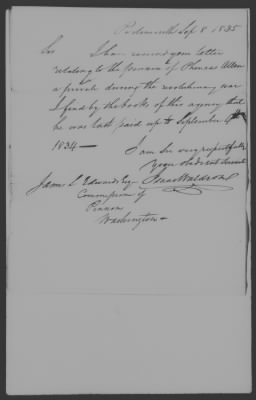 Portsmouth Sep 8 1835
Sir I have received your letter
relating to the pension of Phineas Allen
a private during the revolutionary war
I find by the books of this agency that
he was last paid up to September 4th
1834 —
I am Sir very respectfully
Your obedient Servant
James L Edwards Esq Isaac Waldron
Commissioner of
Pensions
Washington